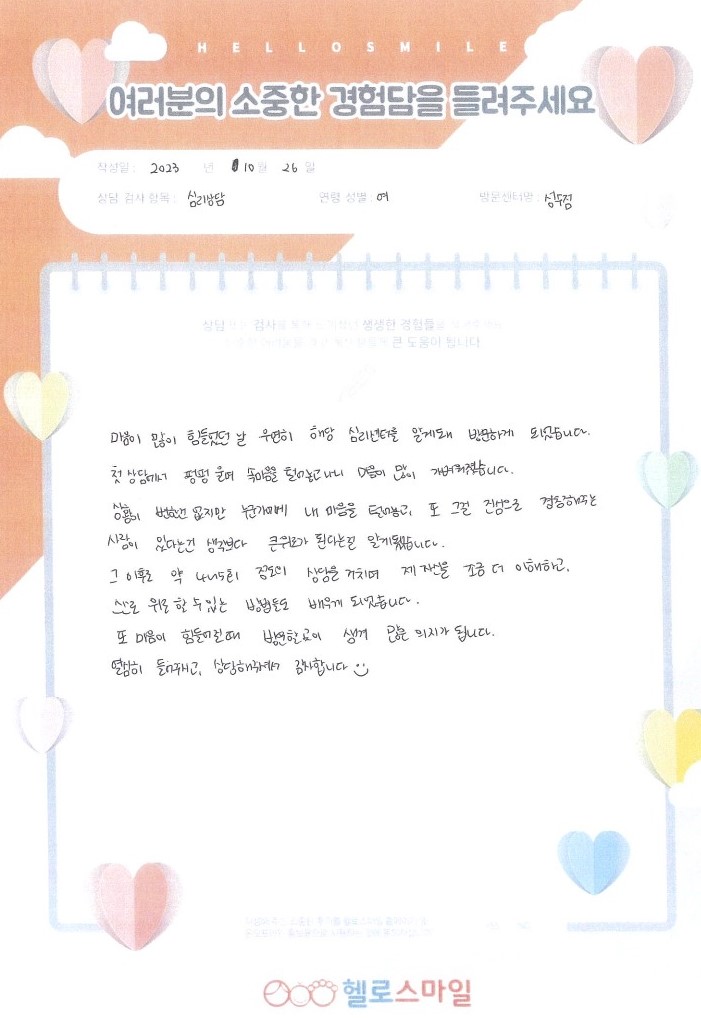 HELLOSMILE
여러분의 소중한 경험담을 들려주세요
작성일 : 2023 년 10월 26일
상담 검사 항목 : 심리상담 연령 성별 : 여 방문센터명 : 성수점
상담 검사 생생한 경험들
큰 도움이 됩니다.
마음이 많이 힘들었던 날 우연히 해당 심리센터를 알게돼 방문하게 되었습니다.
첫 상담에서 펑펑 울며 속마음을 털어놓고나니 마음이 많이 가벼워졌습니다.
상황이 변한건 없지만 누군가에게 내 마음을 털어놓고, 또 그걸 진심으로 경청해주는
사람이 있다는건 생각보다 큰위로가 된다는걸 알게됐습니다.
그 이후로 약 4~5회 정도의 상담을 거치며 제 자신을 조금 더 이해하고,
스스로 위로 할 수 있는 방법들도 배우게 되었습니다.
또 마음이 힘들어질때 방문할곳이 생겨 많은 의지가 됩니다.
열심히 들어주시고, 상담해주셔서 감사합니다 :)
헬로스마일